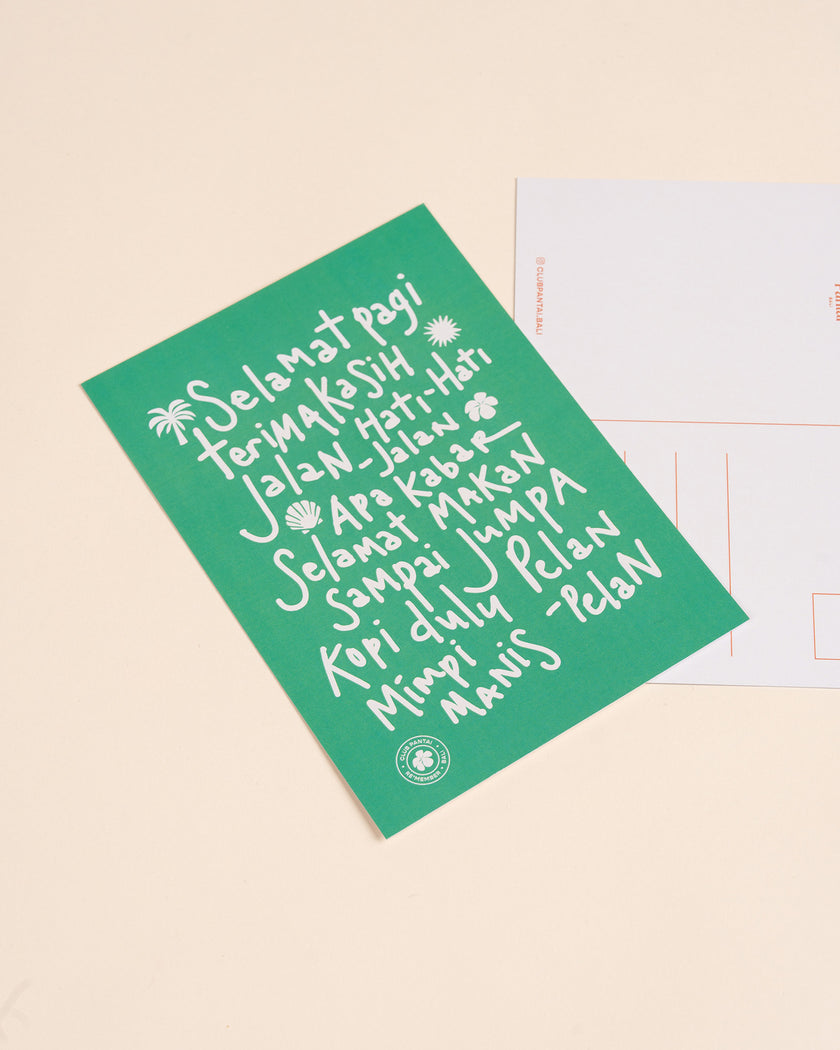 Selamat pagi
terima kasih
Jalan Hati-Hati
-Jalan
Apa Kabar
Selamat Makan
Sampai Jumpa
Kopi dulu Pelan
Mimpi -Pelan
Manis
CLUB PANTAI • BALI • RE'MEMBER •
CLUBPANTAI.BALI
BALI